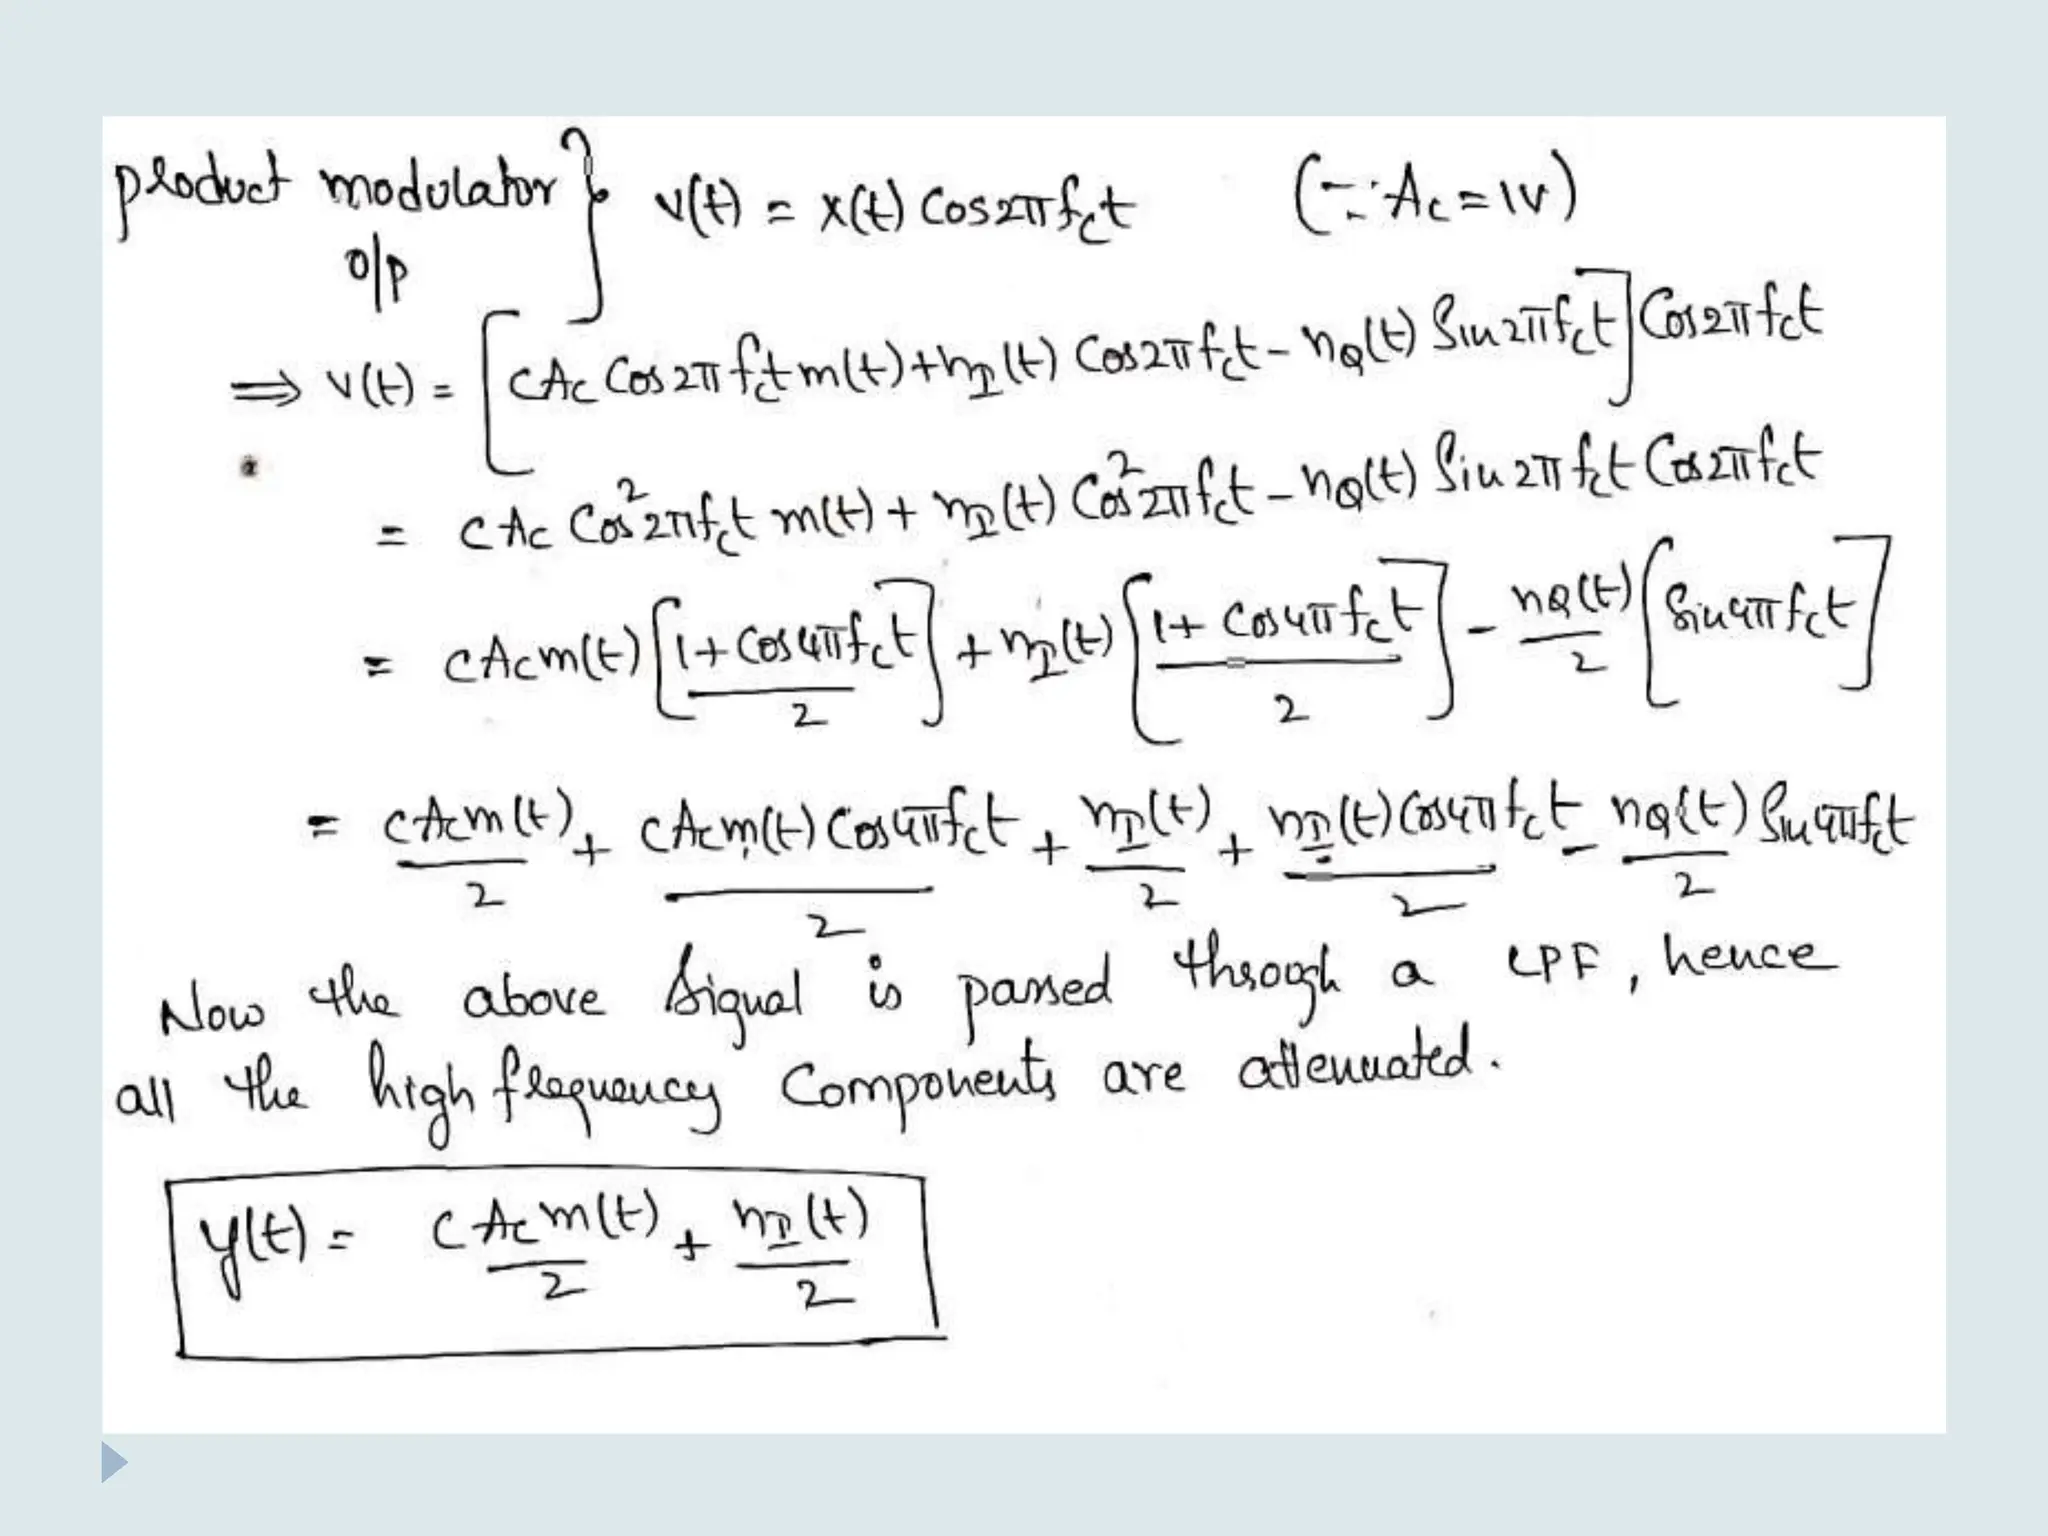 product modulator } v(t) = x(t) Cos2πfct (∵ Ac=1v)
o/p
⇒ v(t) = [CAc Cos2πfct m(t)+nI(t) Cos2πfct - nQ(t) Sin2πfct] Cos2πfct
= CAc Cos²2πfct m(t) + nI(t) Cos²2πfct - nQ(t) Sin2πfct Cos2πfct
= CAcm(t) [1+Cos4πfct/2] + nI(t) [1+ Cos4πfct/2] - nQ(t)/2 [Sin4πfct]
= CAcm(t)/2 + CAcm(t) Cos4πfct/2 + nI(t)/2 + nI(t) Cos4πfct/2 - nQ(t)/2 Sin4πfct
Now the above signal is passed through a LPF, hence
all the high frequency Components are attenuated.
y(t) = CAcm(t)/2 + nI(t)/2